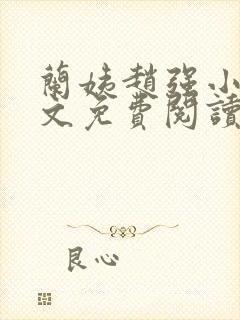 蘭姨趙強小
文免費閱讀
良心